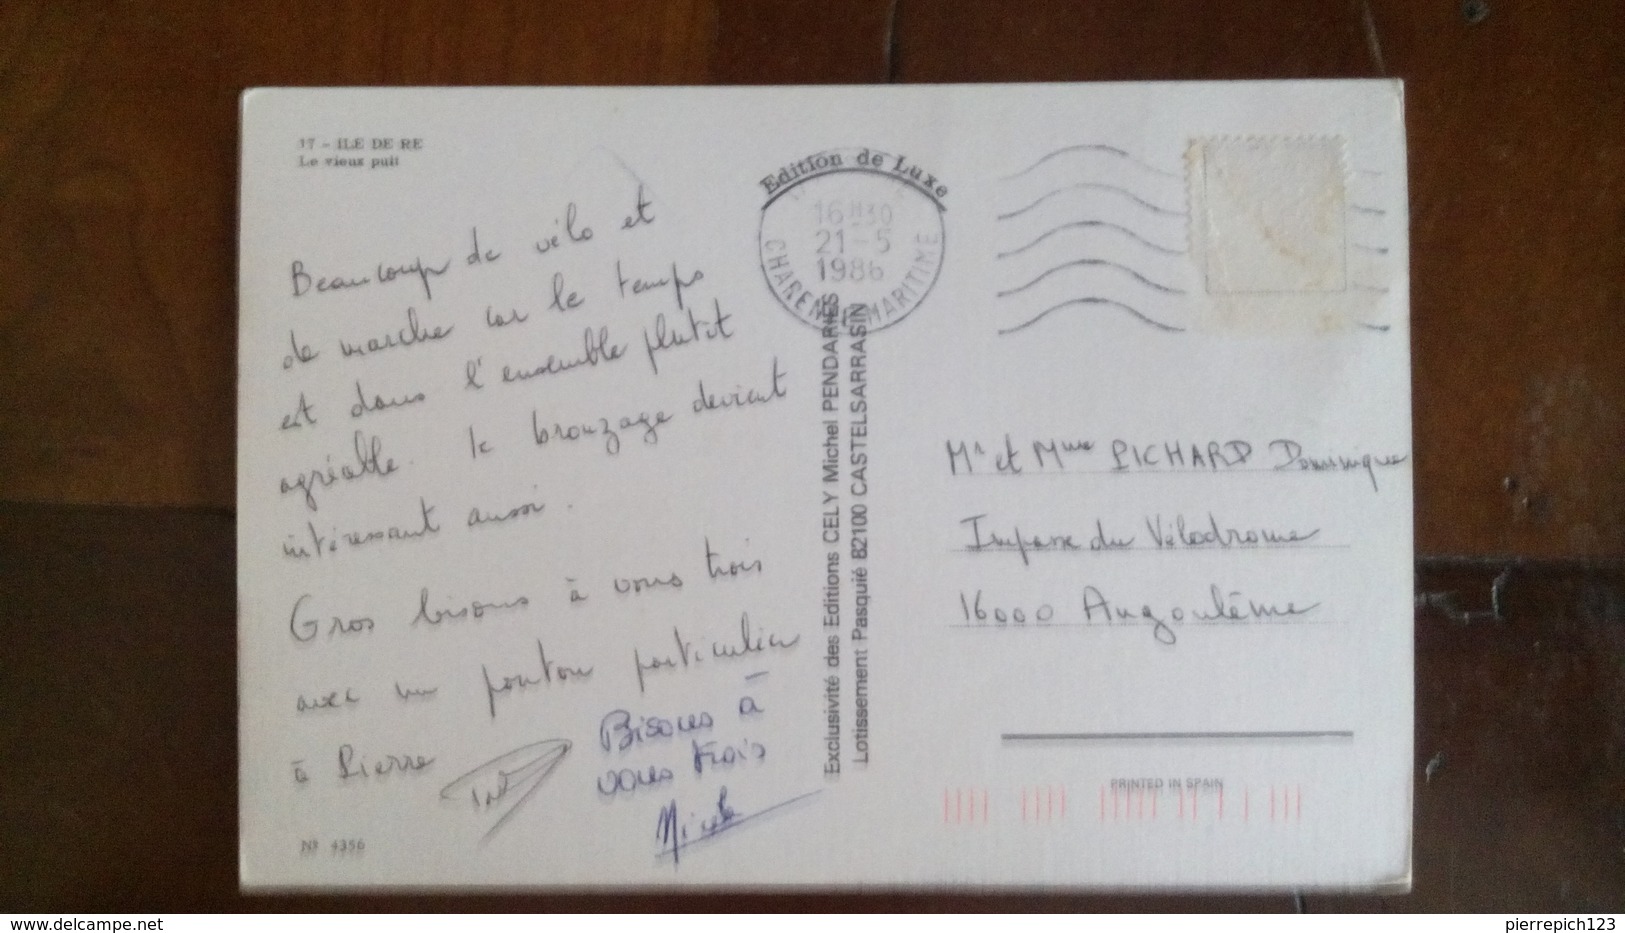 17 - ILE DE RE
Le vieux puit
Beaucoup de vélo et
de marche car le temps
est dans l'ensemble plutôt
agréable. le bronzage devient
intéressant aussi.
Gros bisous à vous trois
avec un pouton particulier
à Pierre
Bisous à
vous trois
Nicole
Nº 4356
Edition de Luxe
16H30
21-5
1986
CHARENTE MARITIME
Exclusivité des Editions CELY Michel PENDARIES
Lotissement Pasquié 82100 CASTELSARRASIN
Mr et Mme PICHARD Dominique
Impasse du Vélodrome
16000 Angoulême
PRINTED IN SPAIN
delcampe.net
pierrepich123